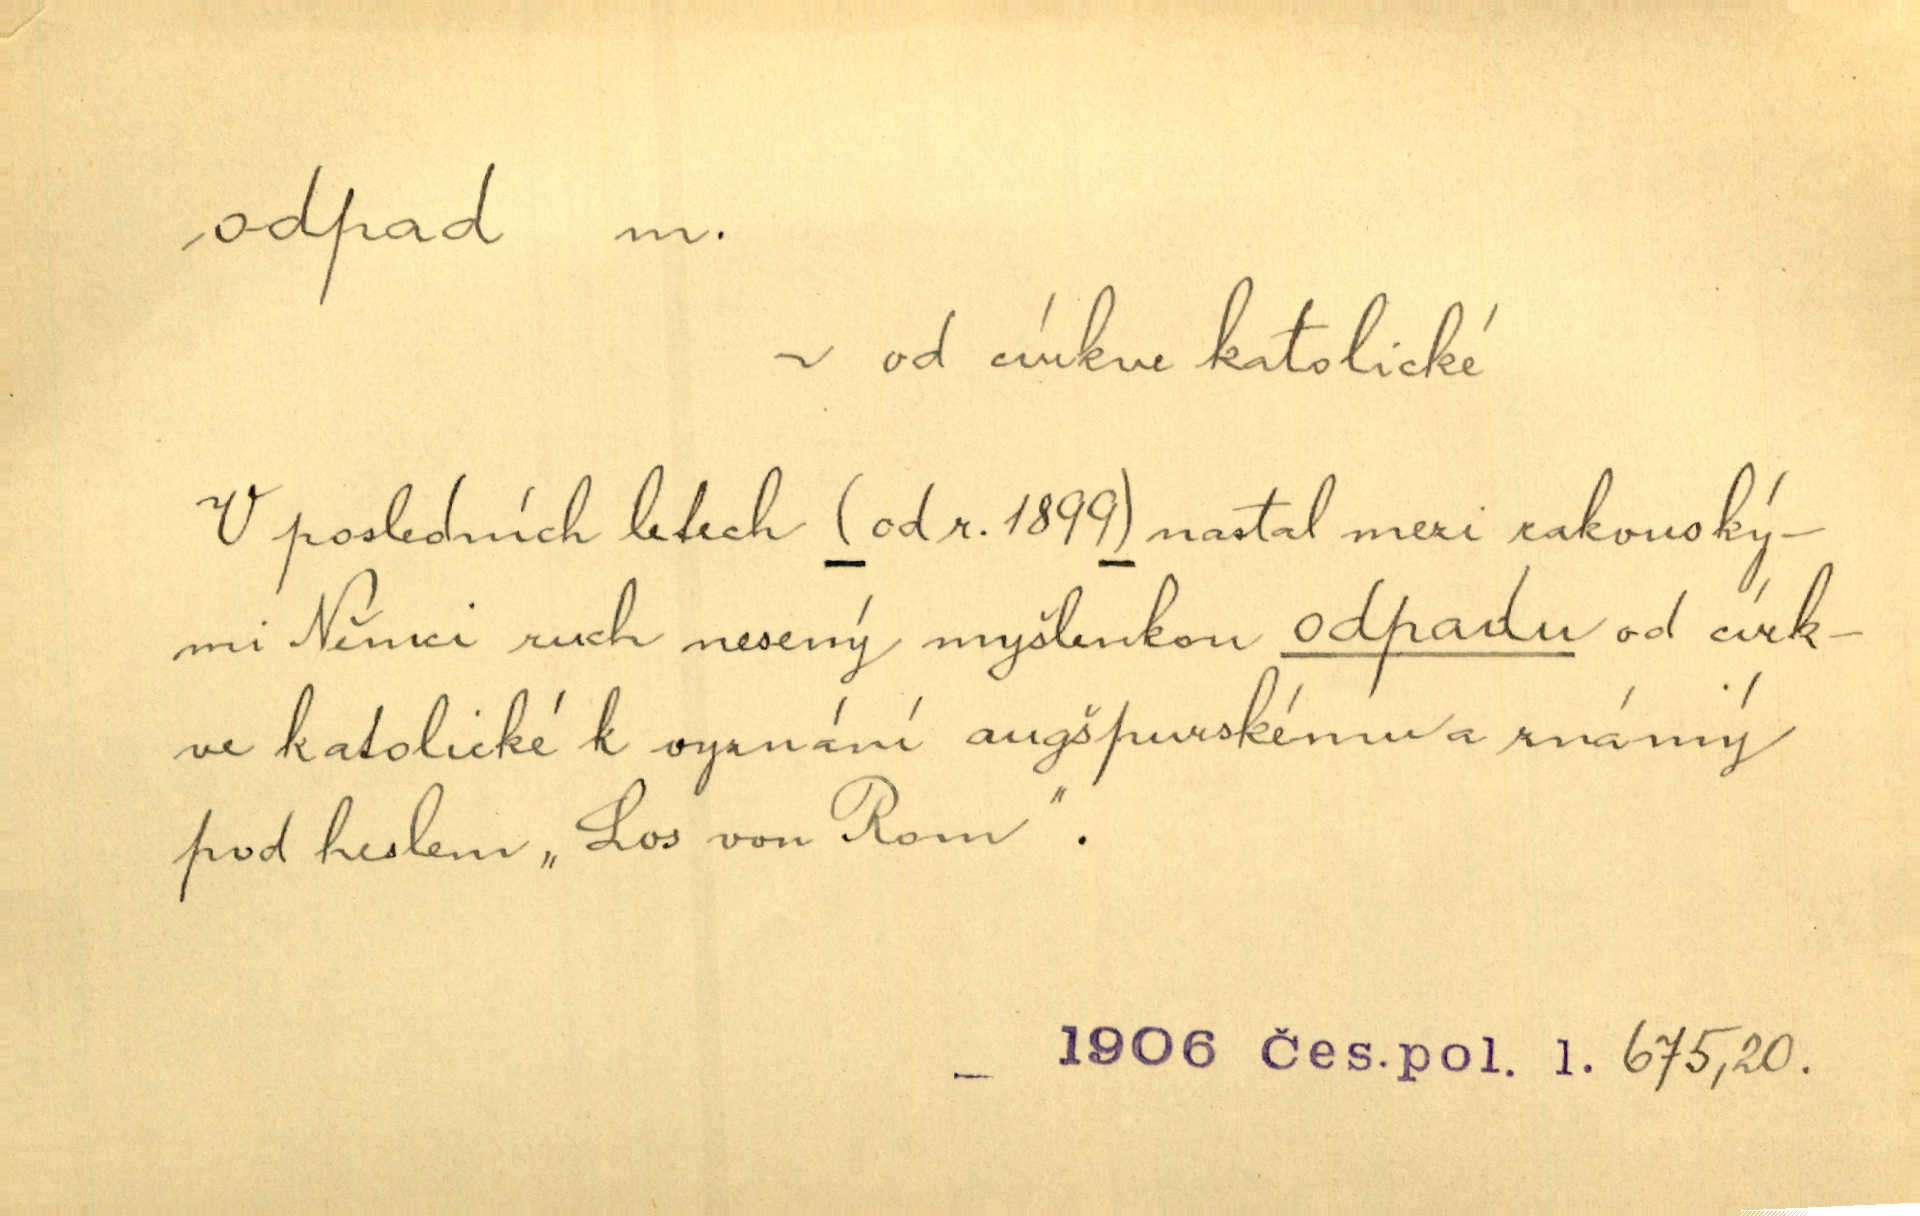 odpad m.
~ od církve katolické
V posledních letech (od r. 1899) nastal mezi rakouský-
mi Němci ruch nesený myšlenkou odpadu od círk-
ve katolické k vyznání augšpurskému a známý
pod heslem „Los von Rom".
_ 1906 Čes.pol. 1. 675,20.